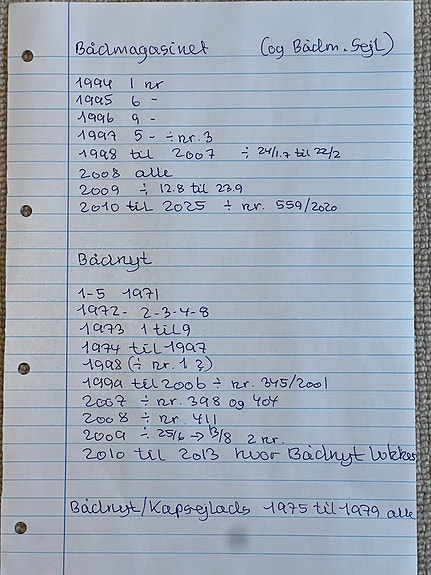 Bådmagasinet (og Bådm. Sejl)
1994 1 nr
1995 6 -
1996 9 -
1997 5 - ÷ nr. 3
1998 til 2007 ÷ 24/1.7 til 22/2
2008 alle
2009 ÷ 12.8 til 23.9
2010 til 2025 ÷ nr. 559/2020
Bådnyt
1-5 1971
1972 - 2-3-4-8
1973 1 til 9
1974 til 1997
1998 (÷ nr. 1 ?)
1999 til 2006 ÷ nr. 345/2001
2007 ÷ nr. 398 og 404
2008 ÷ nr. 411
2009 ÷ 25/6 → 13/8 2 nr.
2010 til 2013 hvor Bådnyt lukker
Bådnyt/Kapsejlads 1975 til 1979 alle